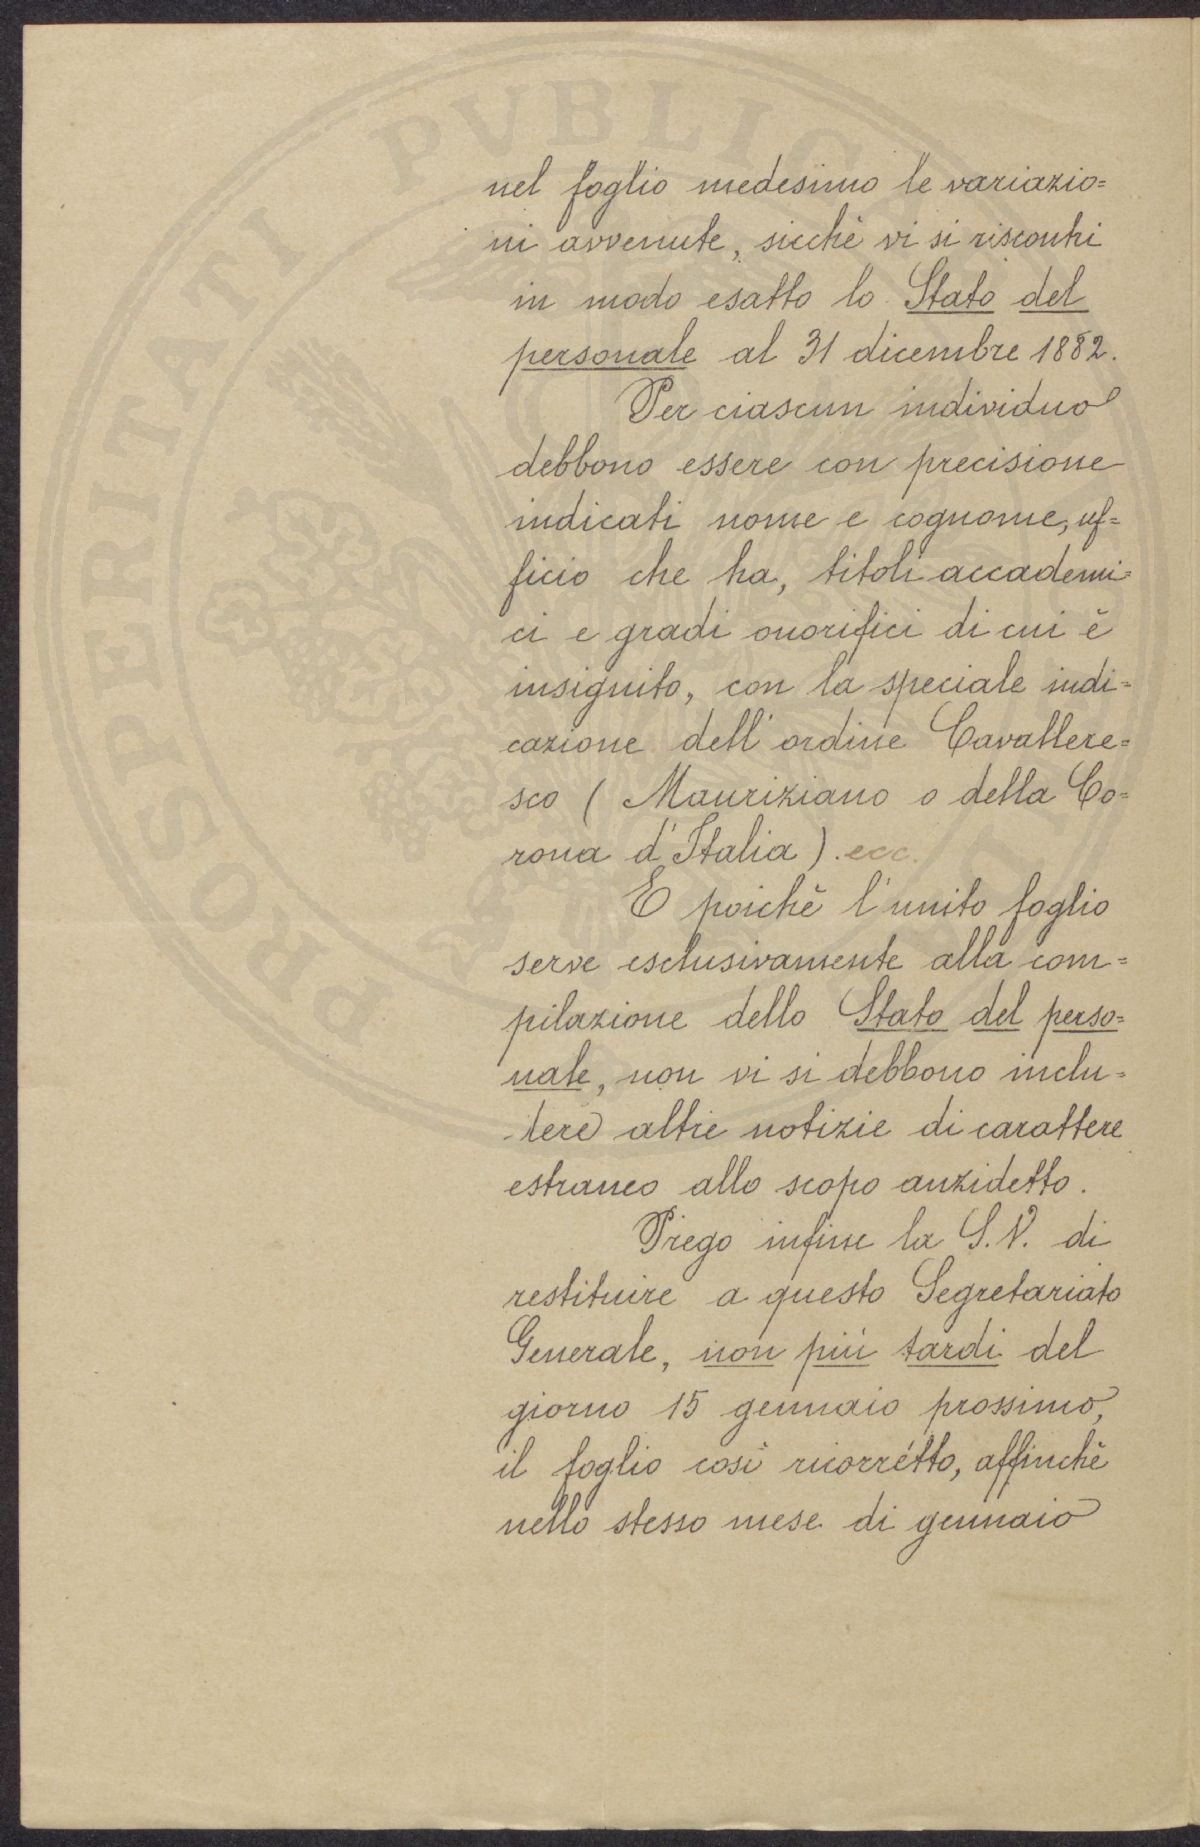 nel foglio medesimo le variazio=
ni avvenute, sicchè vi si riscontri
in modo esatto lo Stato del
personale al 31 dicembre 1882.
Per ciascun individuo
debbono essere con precisione
indicati nome e cognome, uf=
ficio che ha, titoli accademi=
ci e gradi onorifici di cui è
insignito, con la speciale indi=
cazione dell'ordine Cavallere=
sco (Mauriziano o della Co=
rona d'Italia). ecc.
E poichè l'unito foglio
serve esclusivamente alla com=
pilazione dello Stato del perso=
nale, non vi si debbono inclu=
dere altre notizie di carattere
estraneo allo scopo anzidetto.
Prego infine la S.V. di
restituire a questo Segretariato
Generale, non più tardi del
giorno 15 gennaio prossimo,
il foglio così ricorretto, affinchè
nello stesso mese di gennaio
PROSPERITATI PVBLIC